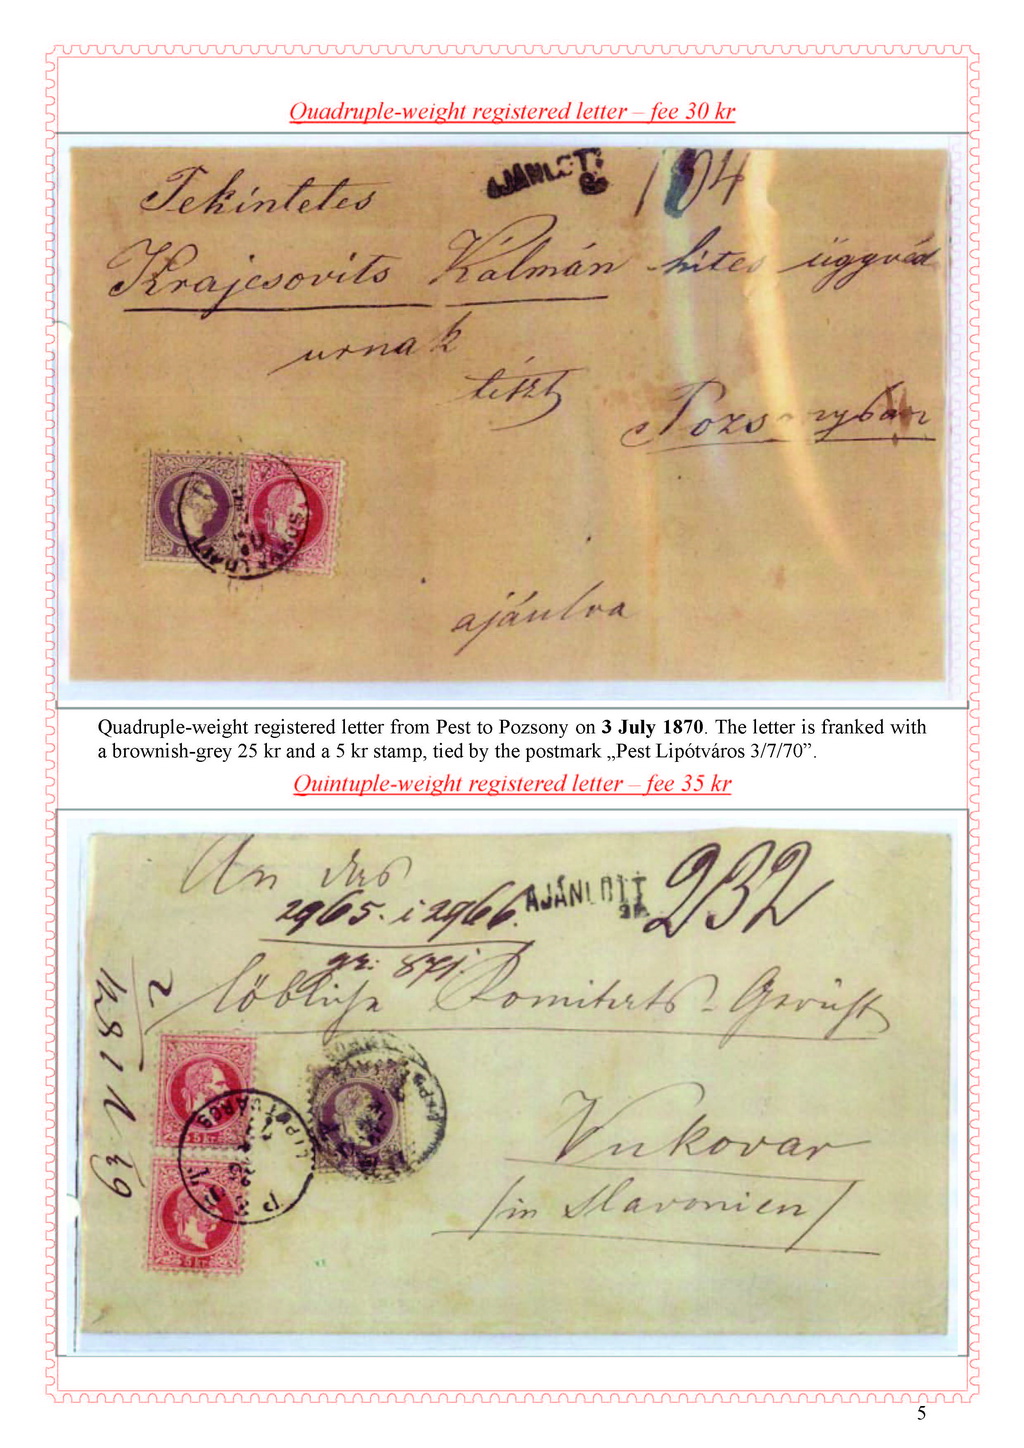 Quadruple-weight registered letter – fee 30 kr
AJÁNLOTT
Tekintetes
Krajcsovits Kálmán hites ügyvéd
urnak
tiszt
Pozsonyban
ajánlva
Quadruple-weight registered letter from Pest to Pozsony on 3 July 1870. The letter is franked with
a brownish-grey 25 kr and a 5 kr stamp, tied by the postmark „Pest Lipótváros 3/7/70”.
Quintuple-weight registered letter – fee 35 kr
An das
AJÁNLOTT 232
2965. i 2966.
löbliche Komitats-Gericht
Vukovar
/in Slavonien/
5 kr
LIPÓTVÁROS
5 kr
5